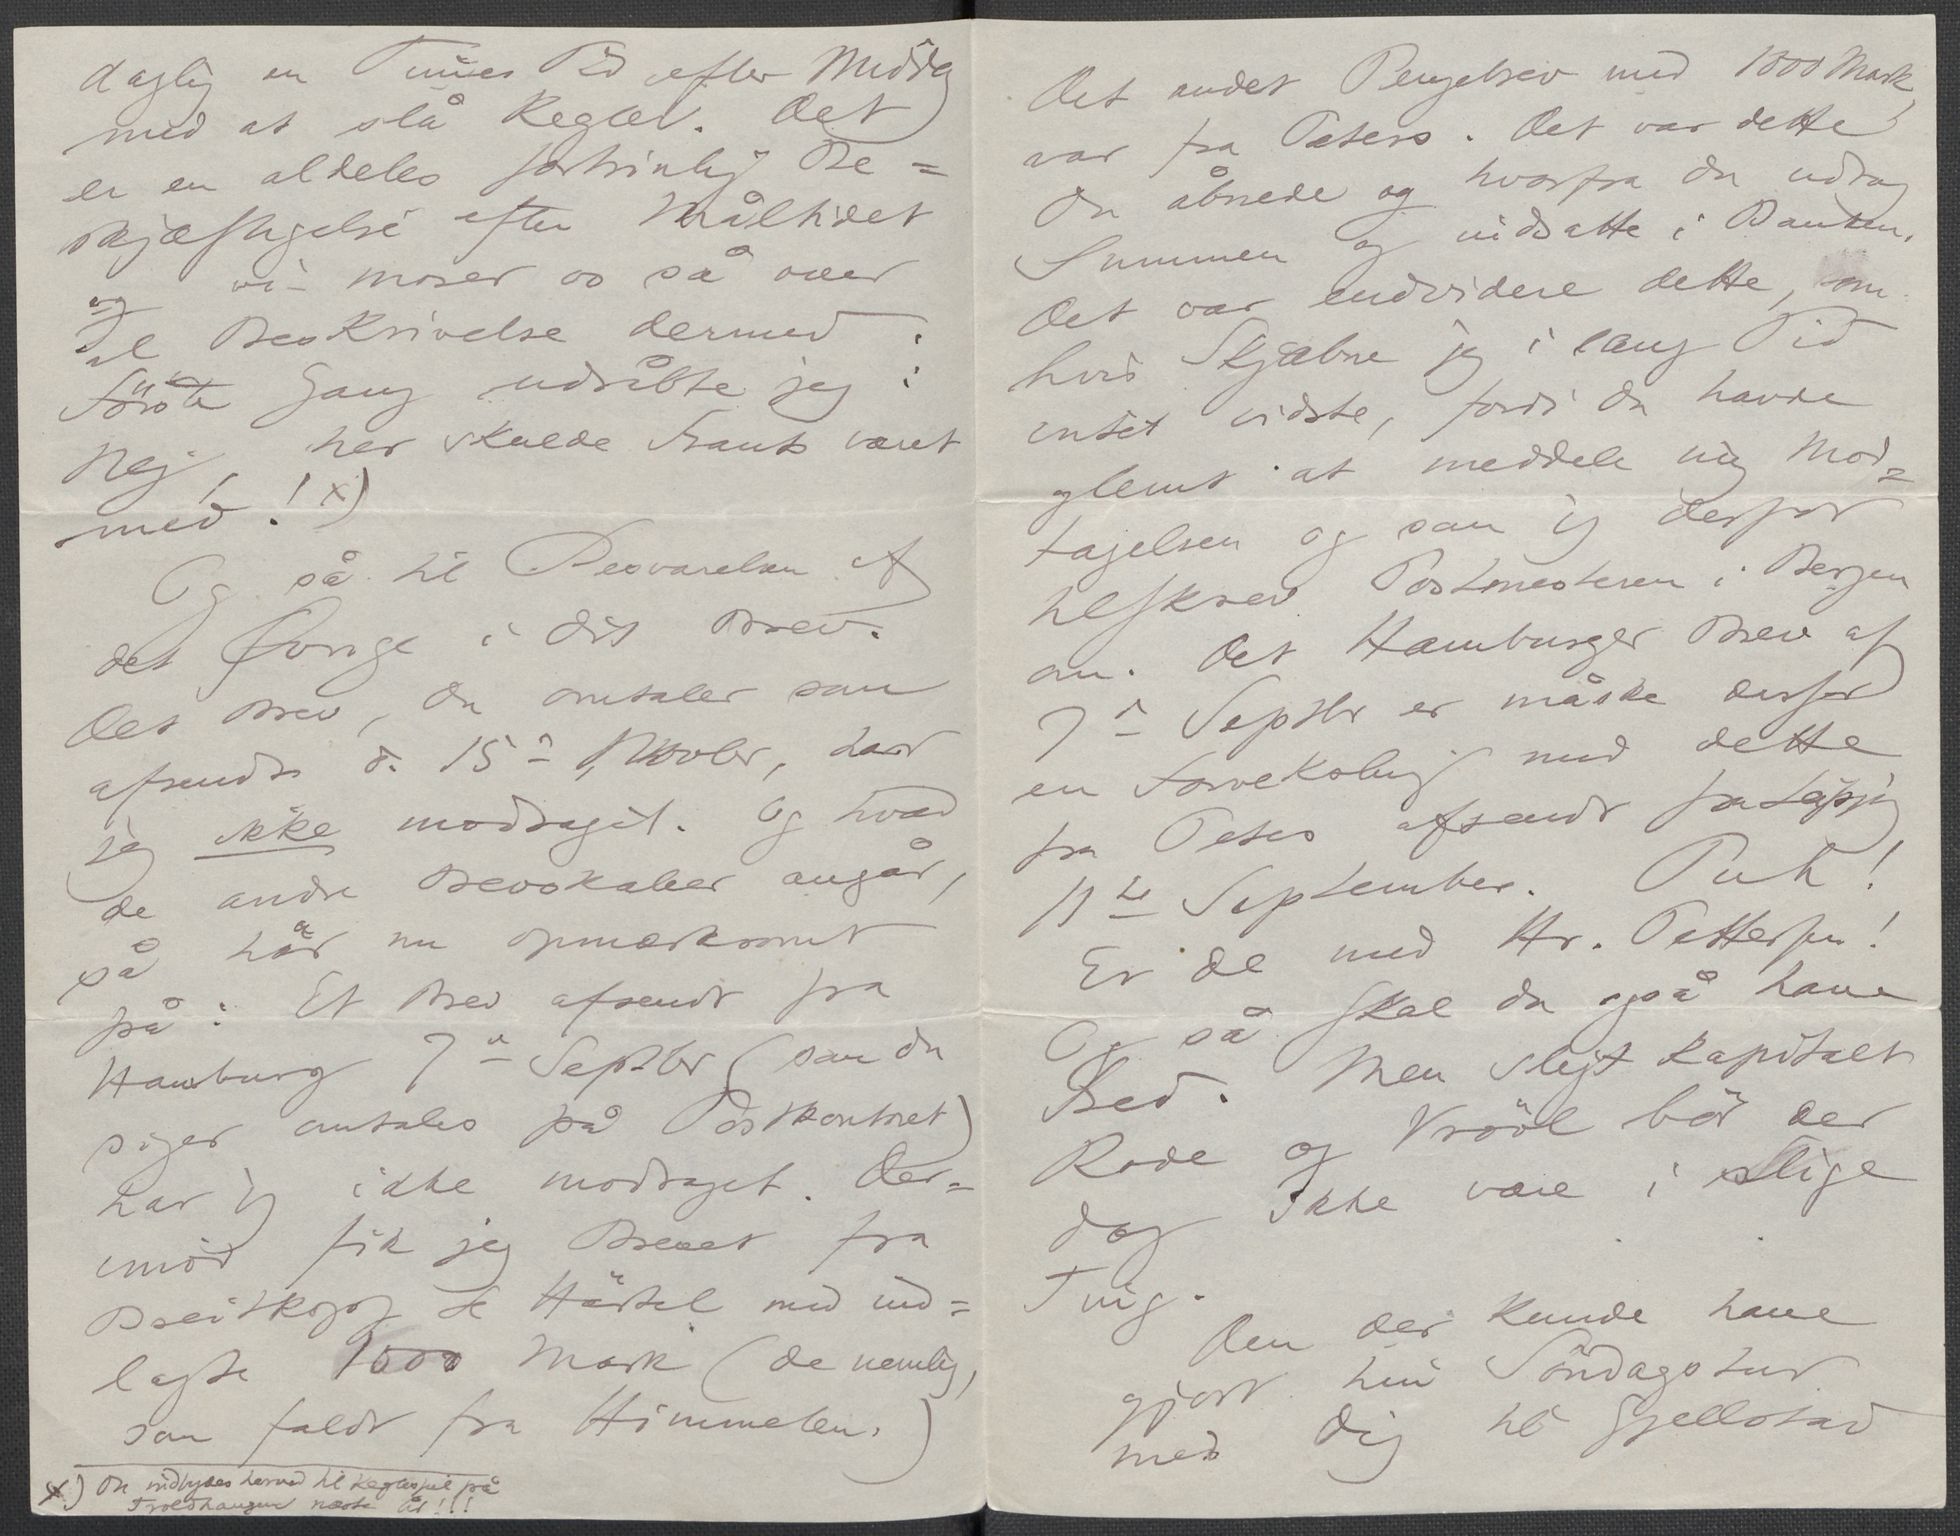 daglig en Times Tid efter Middag
med at slå Kegler. Det
er en aldeles fortrinlig Be=
skjæftigelse efter Måltidet
og vi morer os så over
al Beskrivelse dermed.
Første Gang udråbte jeg:
Nej, her skulde Frants været
med! x)
Og så til Besvarelsen af
det Øvrige i dit Brev.
Det Brev, du omtaler som
afsendt d. 15de Novbr, har
jeg ikke modtaget. Og hvad
de andre Brevskaber angår,
så hør nu opmærksomt
på: Et Brev afsendt fra
Hamburg 7de Septbr (som du
siger omtales på Postkontoret)
har jeg ikke modtaget. Der=
imod fik jeg Brevet fra
Breitkopf & Härtel med ind=
lagte 1000 Mark (de nemlig,
som faldt fra Himmelen.)
x) Du indbydes herved til Keglespil på
Troldhaugen næste År!!!
Det andet Pengebrev med 1000 Mark,
var fra Peters. Det var dette
du åbnede og hvorfra du udtog
Summen og indsatte i Banken.
Det var endvidere dette, om
hvis Skjæbne jeg i lang Tid
intet vidste, fordi du havde
glemt at meddele mig Mod=
tagelsen og som jeg derfor
tilskrev Postmesteren i Bergen
om. Det Hamburger Brev af
7de Septbr er måske derfor
en Forveksling med dette
fra Peters afsendt fra Leipzig
11te September. Puh!
Er De med Hr. Pettersen!
Og så skal du også have
Fred. Men sligt kapitalt
Rode og Vrøvl bør der
dog ikke være i slige
Ting.
Den der kunde have
gjort hin Söndagstur
med dig til Gjellestad